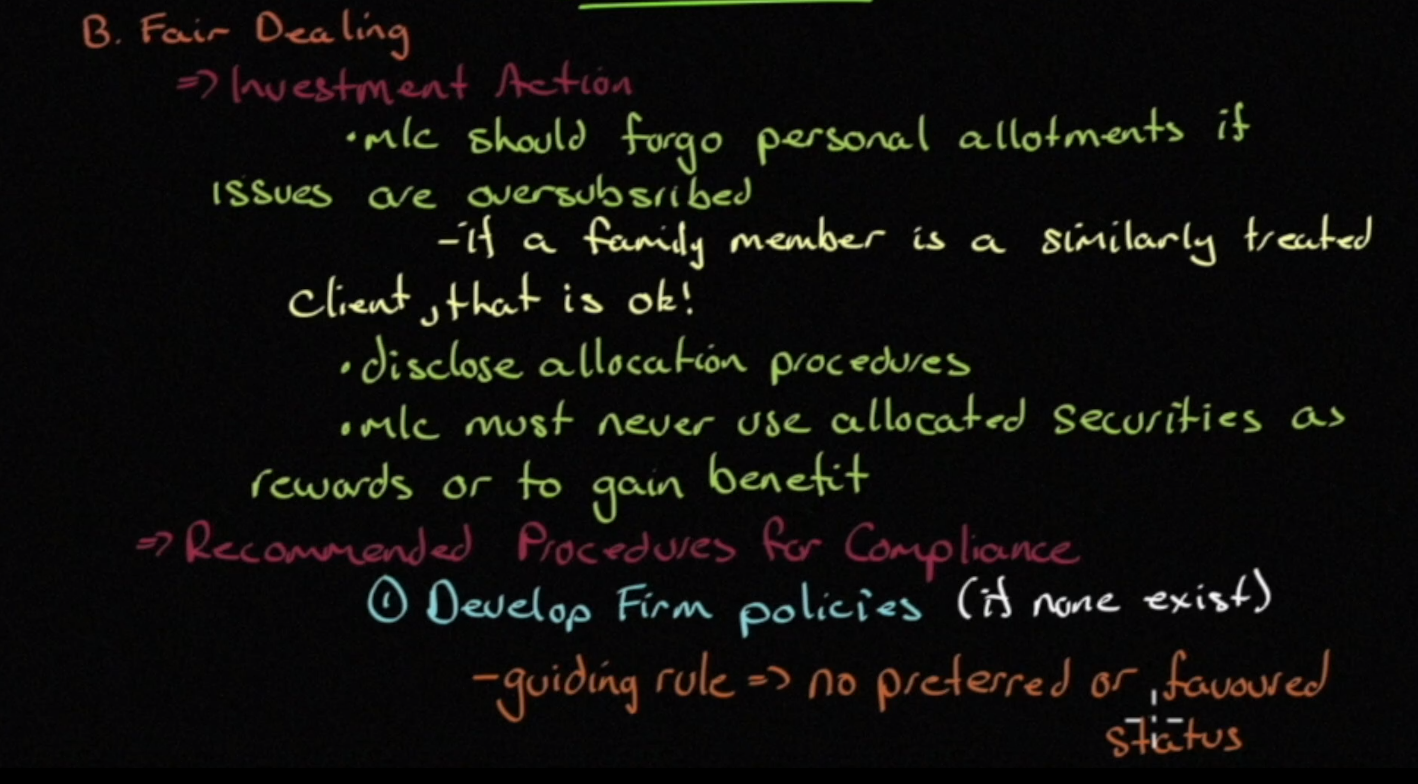 B. Fair Dealing
=> Investment Action
• m/c should forgo personal allotments if
issues are oversubsribed
- if a family member is a similarly treated
client, that is ok!
• disclose allocation procedures
• m/c must never use allocated securities as
rewards or to gain benefit
=> Recommended Procedures for Compliance
① Develop Firm policies (if none exist)
- guiding rule => no preferred or favoured
status